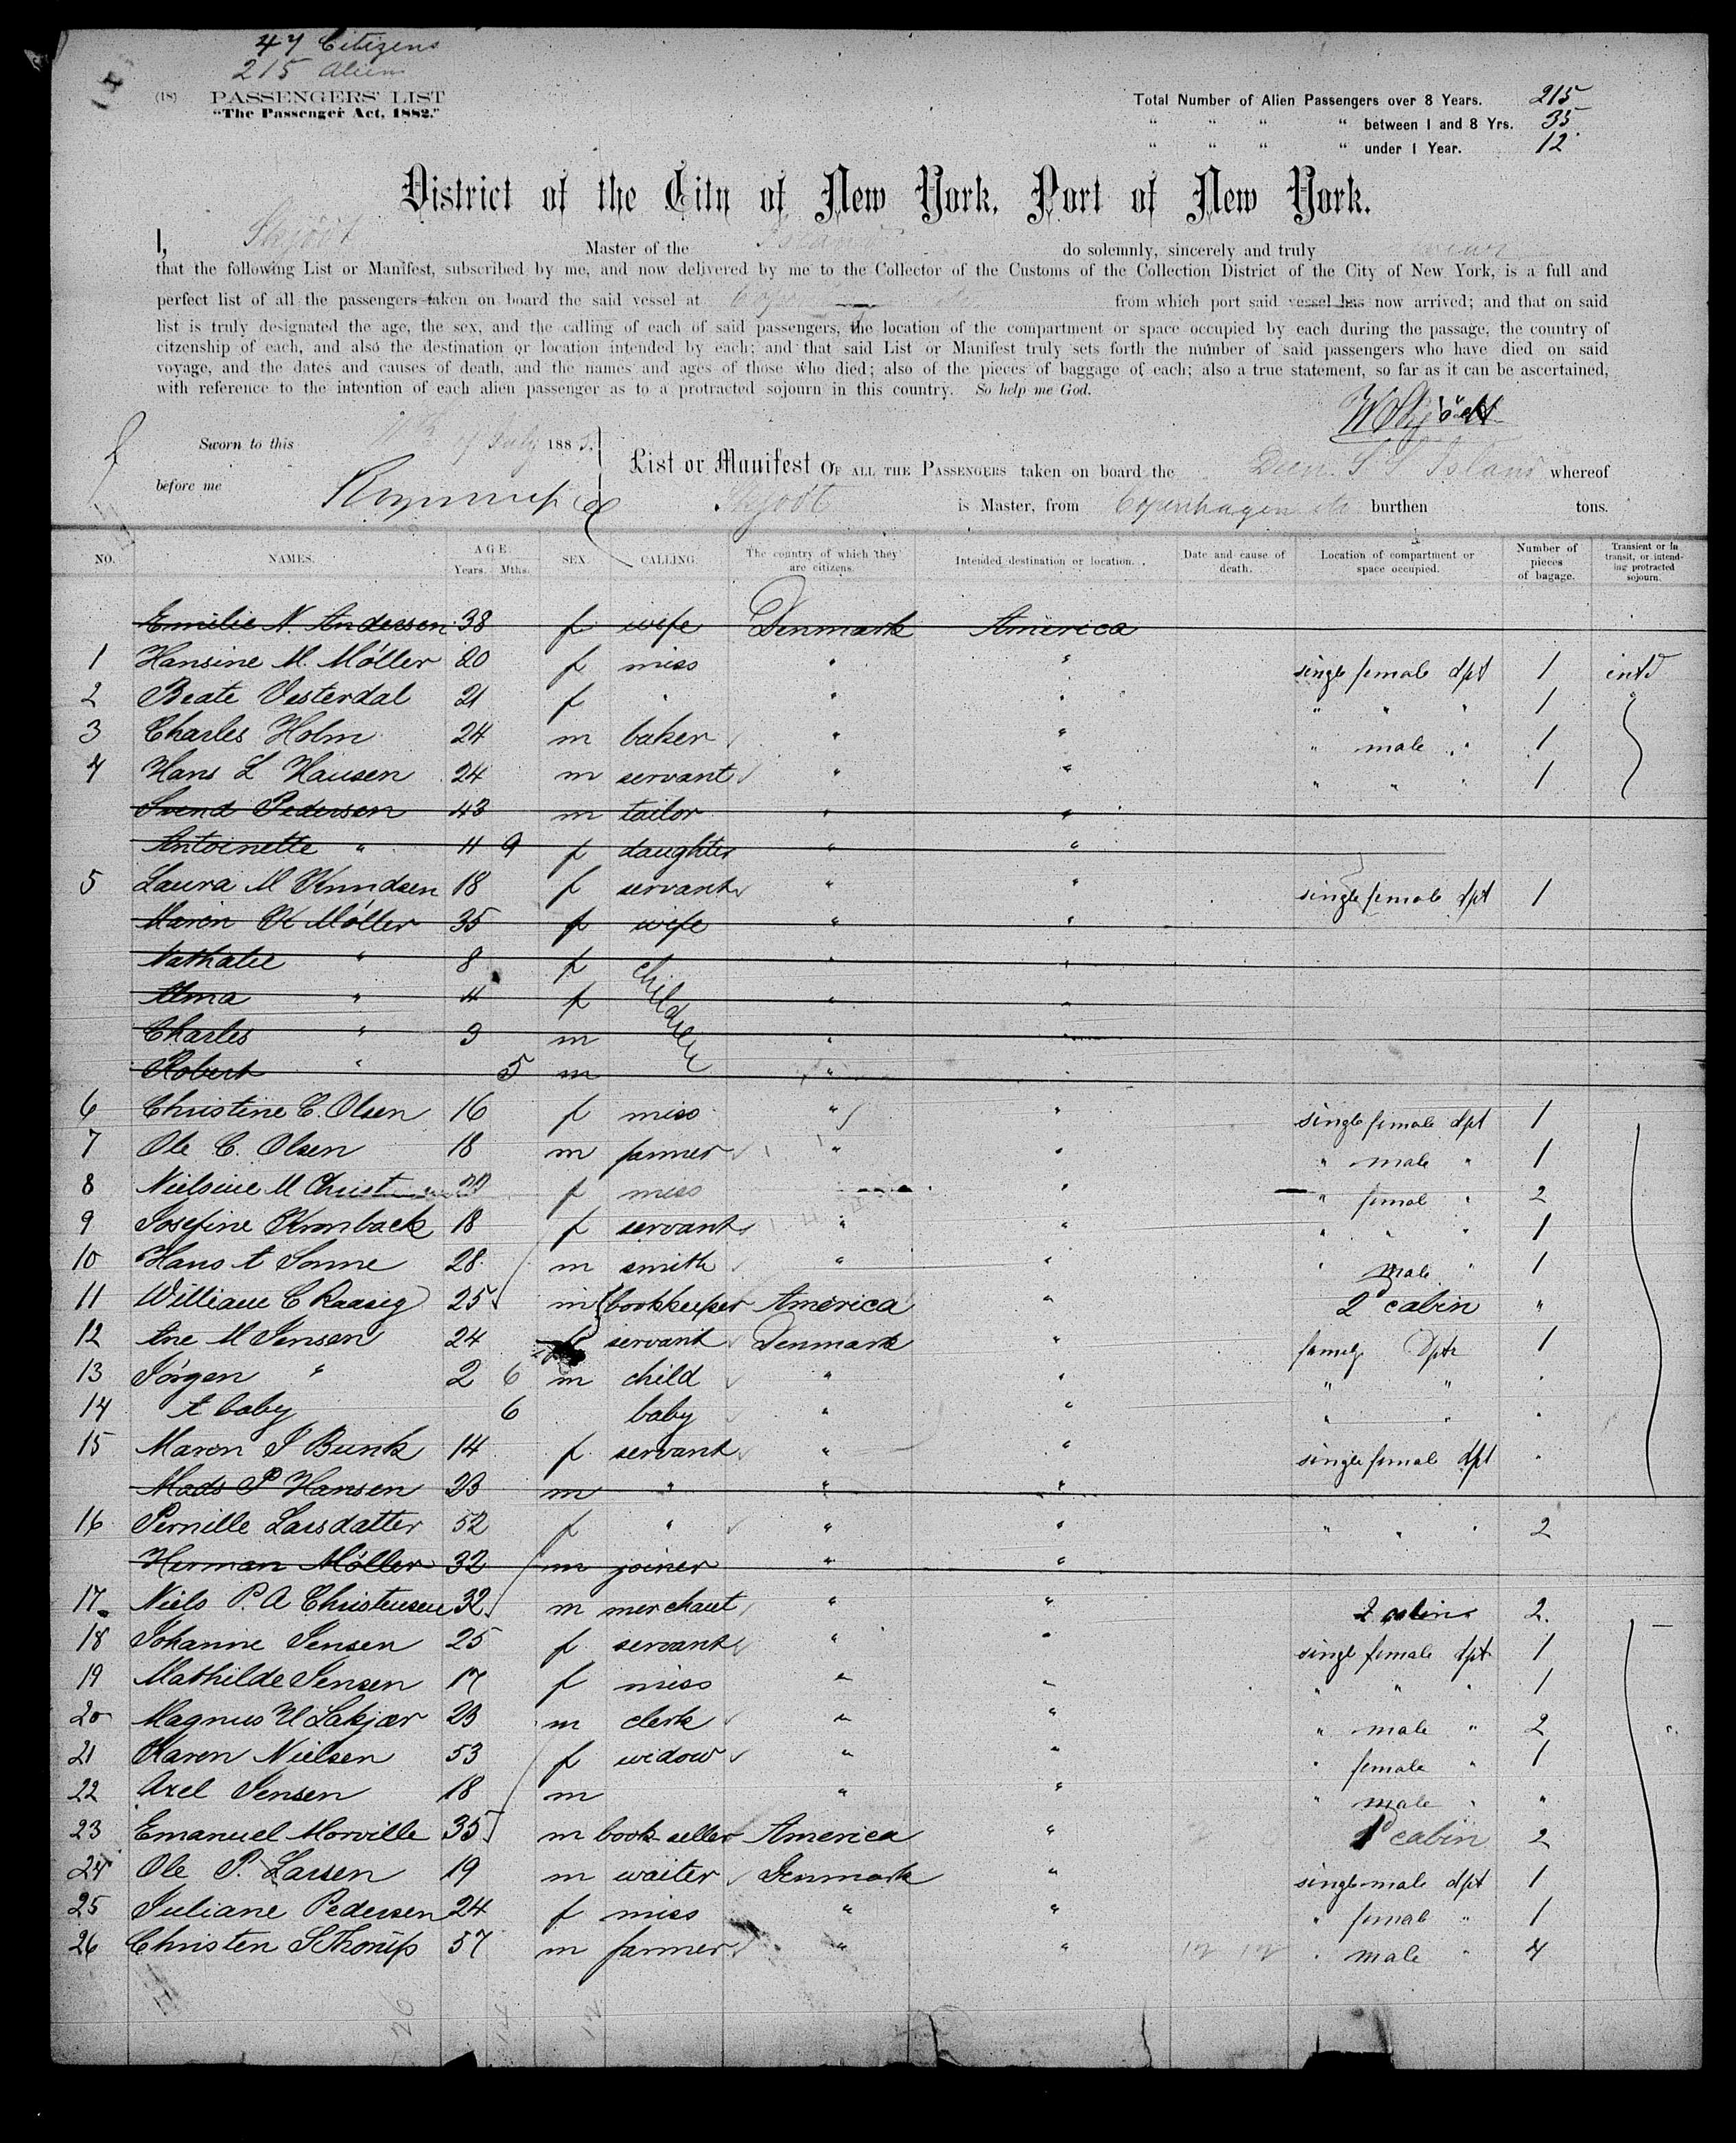 47 Citizens
215 Aliens
(18) PASSENGERS' LIST
"The Passenger Act, 1882."
Total Number of Alien Passengers over 8 Years. 215
" " " " between 1 and 8 Yrs. 35
" " " " under 1 Year. 12
District of the City of New York, Port of New York.
I, Skjödt Master of the Island do solemnly, sincerely and truly swear
that the following List or Manifest, subscribed by me, and now delivered by me to the Collector of the Customs of the Collection District of the City of New York, is a full and
perfect list of all the passengers taken on board the said vessel at from which port said vessel has now arrived; and that on said
list is truly designated the age, the sex, and the calling of each of said passengers, the location of the compartment or space occupied by each during the passage, the country of
citzenship of each, and also the destination or location intended by each; and that said List or Manifest truly sets forth the number of said passengers who have died on said
voyage, and the dates and causes of death, and the names and ages of those who died; also of the pieces of baggage of each; also a true statement, so far as it can be ascertained,
with reference to the intention of each alien passenger as to a protracted sojourn in this country. So help me God.
W Skjödt
Sworn to this of July 188
before me
List or Manifest OF ALL THE PASSENGERS taken on board the S S Island whereof
Skjödt is Master, from Copenhagen burthen tons.
NO. NAMES. AGE Years. Mths. SEX CALLING. The country of which they are citizens. Intended destination or location. Date and cause of death. Location of compartment or space occupied. Number of pieces of bagage. Transient or in transit, or intending protracted sojourn.
Emilie N. Andersen 38 f wife Denmark America
1 Hansine M. Möller 20 f miss " " single female dpt 1 intd
2 Beate Vesterdal 21 f " " " " " " 1 "
3 Charles Holm 24 m baker " " " male " 1
4 Hans L Hansen 24 m servant " " " " " 1
Svend Pedersen 43 m tailor " "
Antoinette " 11 9 f daughter " "
5 Laura M Knudsen 18 f servant " " single female dpt 1
Maren K Möller 35 f wife " "
Nathalie " 8 f children " "
Alma " 4 f " "
Charles " 3 m " "
Robert " 5 m " "
6 Christine C. Olsen 16 f miss " " single female dpt 1
7 Ole C. Olsen 18 m farmer " " " male " 1
8 Nielsine M f miss " " female " 2
9 Josefine Kronback 18 f servant " " " " " 1
10 Hans A Sonne 28 m smith " " " male " 1
11 William C Raasig 25 m bookkeeper America " 2d cabin "
12 Ane M Jensen 24 f servant Denmark " family dpt 1
13 Jörgen " 2 6 m child " " " " "
14 A baby 6 baby " " " " "
15 Maren J Bunk 14 f servant " " single female dpt "
Mads P Hansen 23 m " " "
16 Pernille Larsdatter 52 f " " " " " " 2
Herman Möller 32 m joiner " "
17 Niels P. A Christensen 32 m merchant " " 2 cabin 2
18 Johanne Jensen 25 f servant " " single female dpt 1
19 Mathilde Jensen 17 f miss " " " " " 1
20 Magnus U Lakjær 23 m clerk " " " male " 2
21 Karen Nielsen 53 f widow " " " female " 1
22 Axel Jensen 18 m " " " male " "
23 Emanuel Morville 35 m book seller America " cabin 2
24 Ole P. Larsen 19 m waiter Denmark " single male dpt 1
25 Juliane Pedersen 24 f miss " " " female " 1
26 Christen S Thorup 57 m farmer " " " male " 4